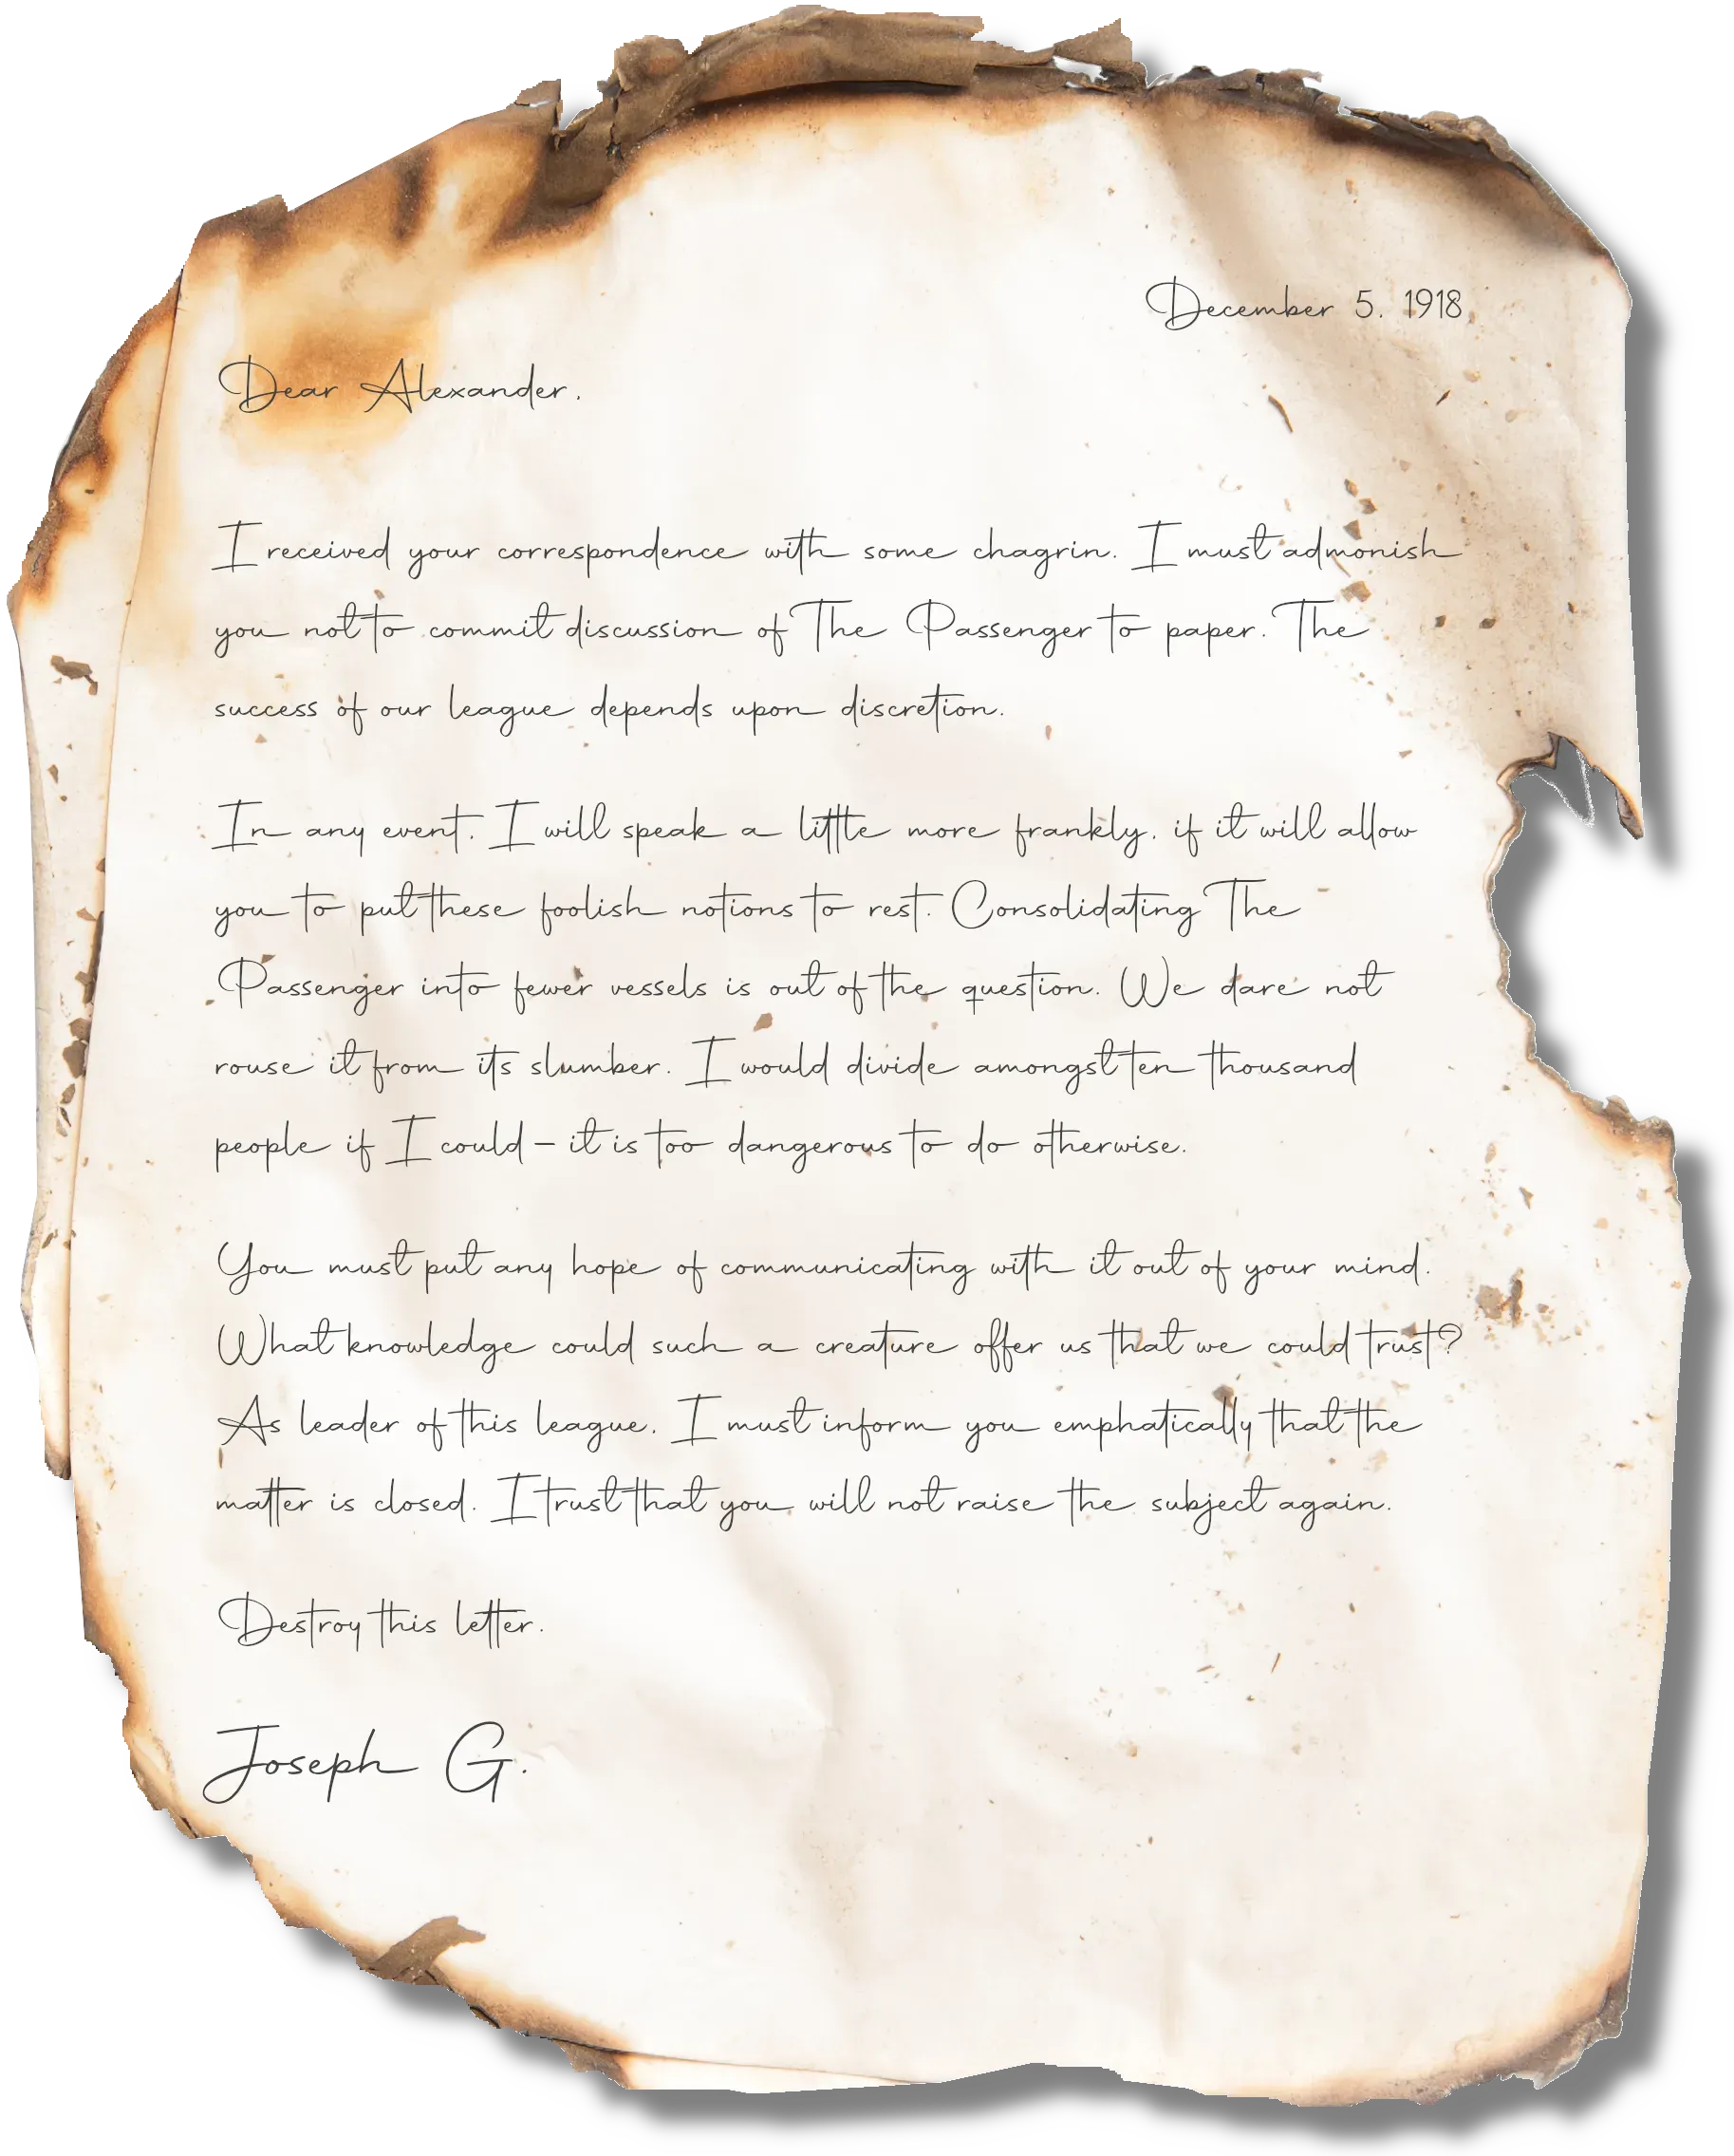 December 5, 1918
Dear Alexander,
I received your correspondence with some chagrin. I must admonish
you not to commit discussion of The Passenger to paper. The
success of our league depends upon discretion.
In any event, I will speak a little more frankly, if it will allow
you to put these foolish notions to rest. Consolidating The
Passenger into fewer vessels is out of the question. We dare not
rouse it from its slumber. I would divide amongst ten thousand
people if I could – it is too dangerous to do otherwise.
You must put any hope of communicating with it out of your mind.
What knowledge could such a creature offer us that we could trust?
As leader of this league, I must inform you emphatically that the
matter is closed. I trust that you will not raise the subject again.
Destroy this letter.
Joseph G.